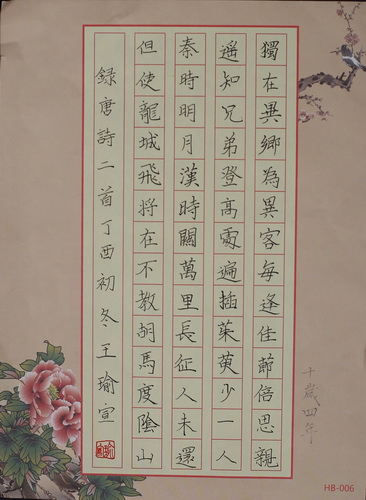 獨在異鄉為異客每逢佳節倍思親
遙知兄弟登高處遍插茱萸少一人
秦時明月漢時關萬里長征人未還
但使龍城飛將在不教胡馬度陰山
錄唐詩二首丁酉初冬王瑜宣
十歲四年
HB-006